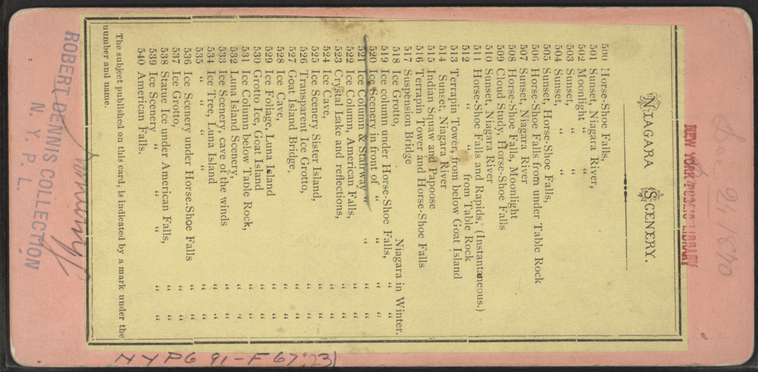 NEW YORK PUBLIC LIBRARY
NIAGARA SCENERY.
500 Horse-Shoe Falls,
501 Sunset, Niagara River,
502 Moonlight " "
503 Sunset, " "
504 Sunset, " "
505 Sunset, Horse-Shoe Falls,
506 Horse-Shoe Falls from under Table Rock
507 Sunset, Niagara River
508 Horse-Shoe Falls, Moonlight
509 Cloud Study, Horse-Shoe Falls
510 Sunset, Niagara River
511 Horse-Shoe Falls and Rapids, (Instantaneous.)
512 " " from Table Rock
513 Terrapin Tower, from below Goat Island
514 Sunset, Niagara River
515 Indian Squaw and Papoose
516 Terrapin Tower and Horse-Shoe Falls
517 Suspension Bridge
518 Ice Grotto, Niagara in Winter.
519 Ice column under Horse-Shoe Falls, "
520 Ice Scenery in front of " " "
521 Ice Column & Stairway " " "
522 Ice Column, American Falls, " "
523 Crystal Lake and reflections, " "
524 Ice Cave, " "
525 Ice Scenery Sister Island, " "
526 Transparent Ice Grotto, " "
527 Goat Island Bridge, " "
528 Ice Cave, " "
529 Ice Foliage, Luna Island " "
530 Grotto Ice, Goat Island " "
531 Ice Column below Table Rock, " "
532 Luna Island Scenery, " "
533 Ice Scenery, cave of the winds " "
534 Ice Tree, Luna Island " "
535 " " " "
536 Ice Scenery under Horse-Shoe Falls " "
537 Ice Grotto, " "
538 Statue Ice under American Falls, " "
539 Ice Scenery " " " "
540 American Falls. " "
The subject published on this card, is indicated by a mark under the
number and name.
ROBERT DENNIS COLLECTION
N. Y. P. L.
NYPG 91-F67